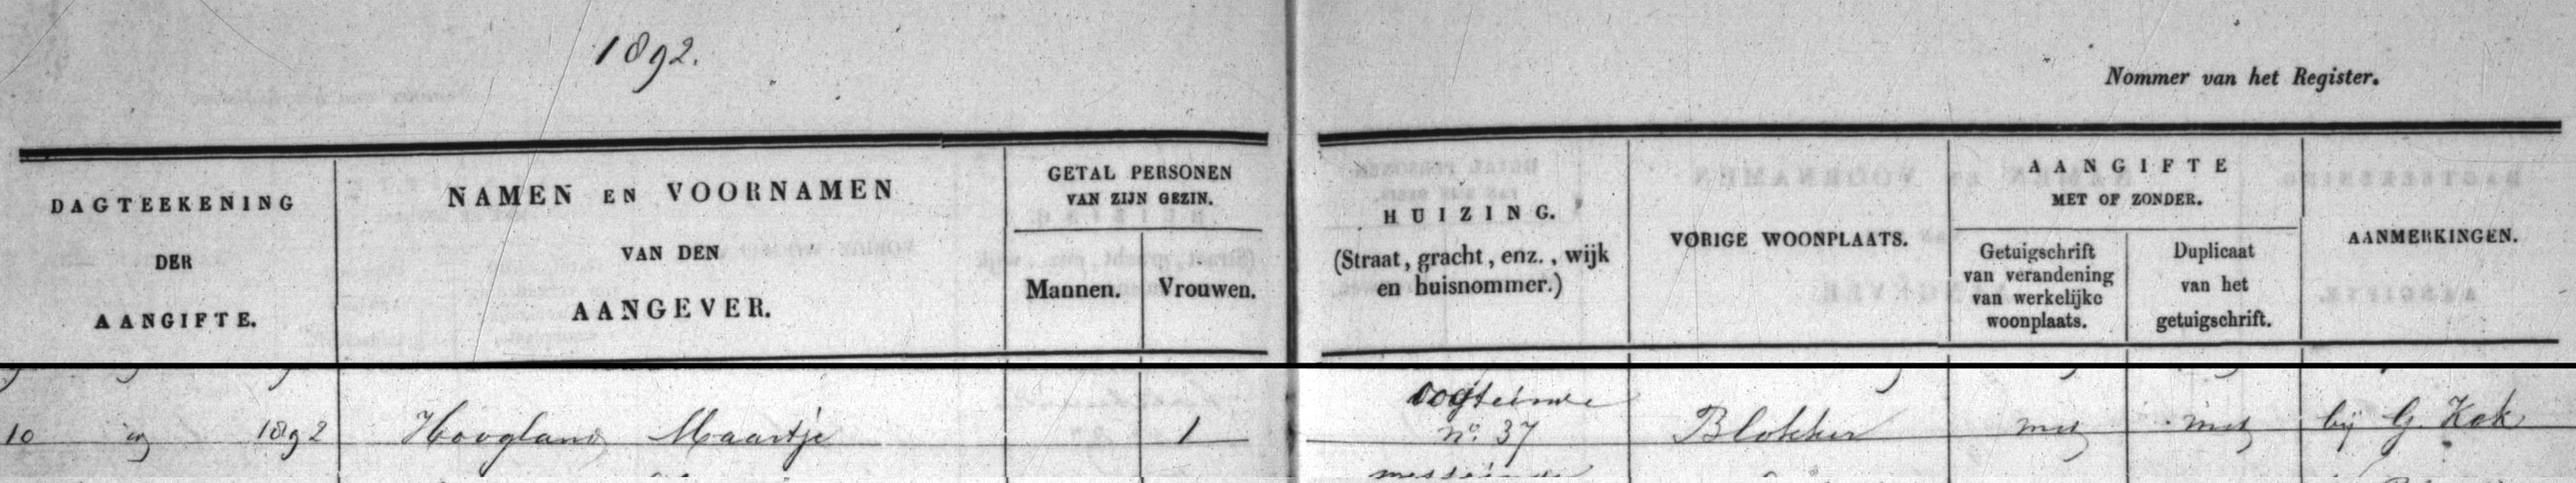 1892.
Nommer van het Register.
DAGTEEKENING
DER
AANGIFTE.
NAMEN EN VOORNAMEN
VAN DEN
AANGEVER.
GETAL PERSONEN
VAN ZIJN GEZIN.
Mannen.
Vrouwen.
HUIZING.
(Straat, gracht, enz., wijk
en huisnommer.)
VORIGE WOONPLAATS.
AANGIFTE
MET OF ZONDER.
Getuigschrift
van verandening
van werkelijke
woonplaats.
Duplicaat
van het
getuigschrift.
AANMERKINGEN.
10 1892 Hoogland Maartje 1
oosteinde
no. 37
Blokker met met bij G. Kok